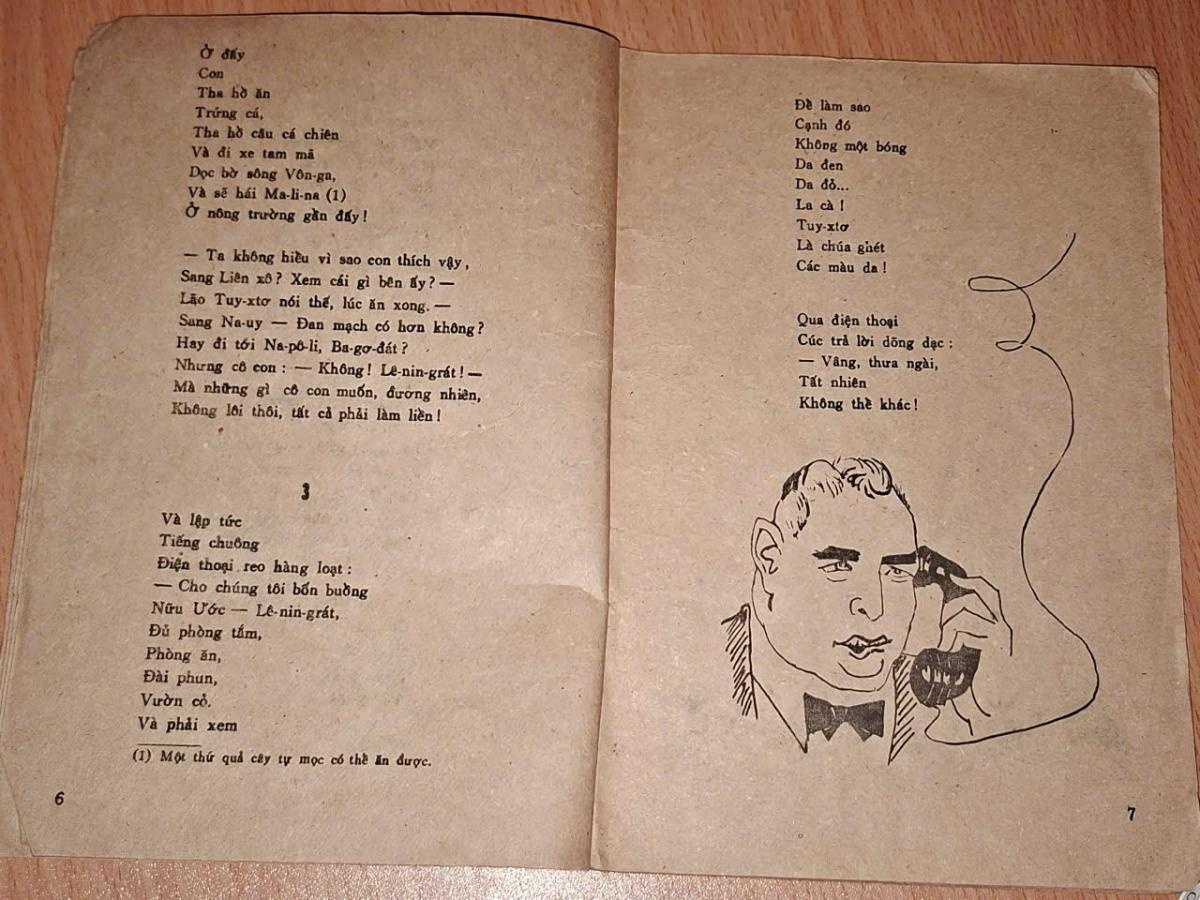 Ở đấy
Con
Tha hồ ăn
Trứng cá,
Tha hồ câu cá chiên
Và đi xe tam mã
Dọc bờ sông Vôn-ga,
Và sẽ hái Ma-li-na (1)
Ở nông trường gần đấy!
— Ta không hiểu vì sao con thích vậy,
Sang Liên xô? Xem cái gì bên ấy? —
Lão Tuy-xtơ nói thế, lúc ăn xong. —
Sang Na-uy — Đan mạch có hơn không?
Hay đi tới Na-pô-li, Ba-gơ-đát?
Nhưng cô con: — Không! Lê-nin-grát! —
Mà những gì cô con muốn, đương nhiên,
Không lôi thôi, tất cả phải làm liền!
3
Và lập tức
Tiếng chuông
Điện thoại reo hàng loạt:
— Cho chúng tôi bốn buồng
Nữu Ước — Lê-nin-grát,
Đủ phòng tắm,
Phòng ăn,
Đài phun,
Vườn cỏ.
Và phải xem
(1) Một thứ quả cây tự mọc có thể ăn được.
6
Để làm sao
Cạnh đó
Không một bóng
Da đen
Da đỏ...
La cà!
Tuy-xtơ
Là chúa ghét
Các màu da!
Qua điện thoại
Cúc trả lời dõng dạc:
— Vâng, thưa ngài,
Tất nhiên
Không thể khác!
7